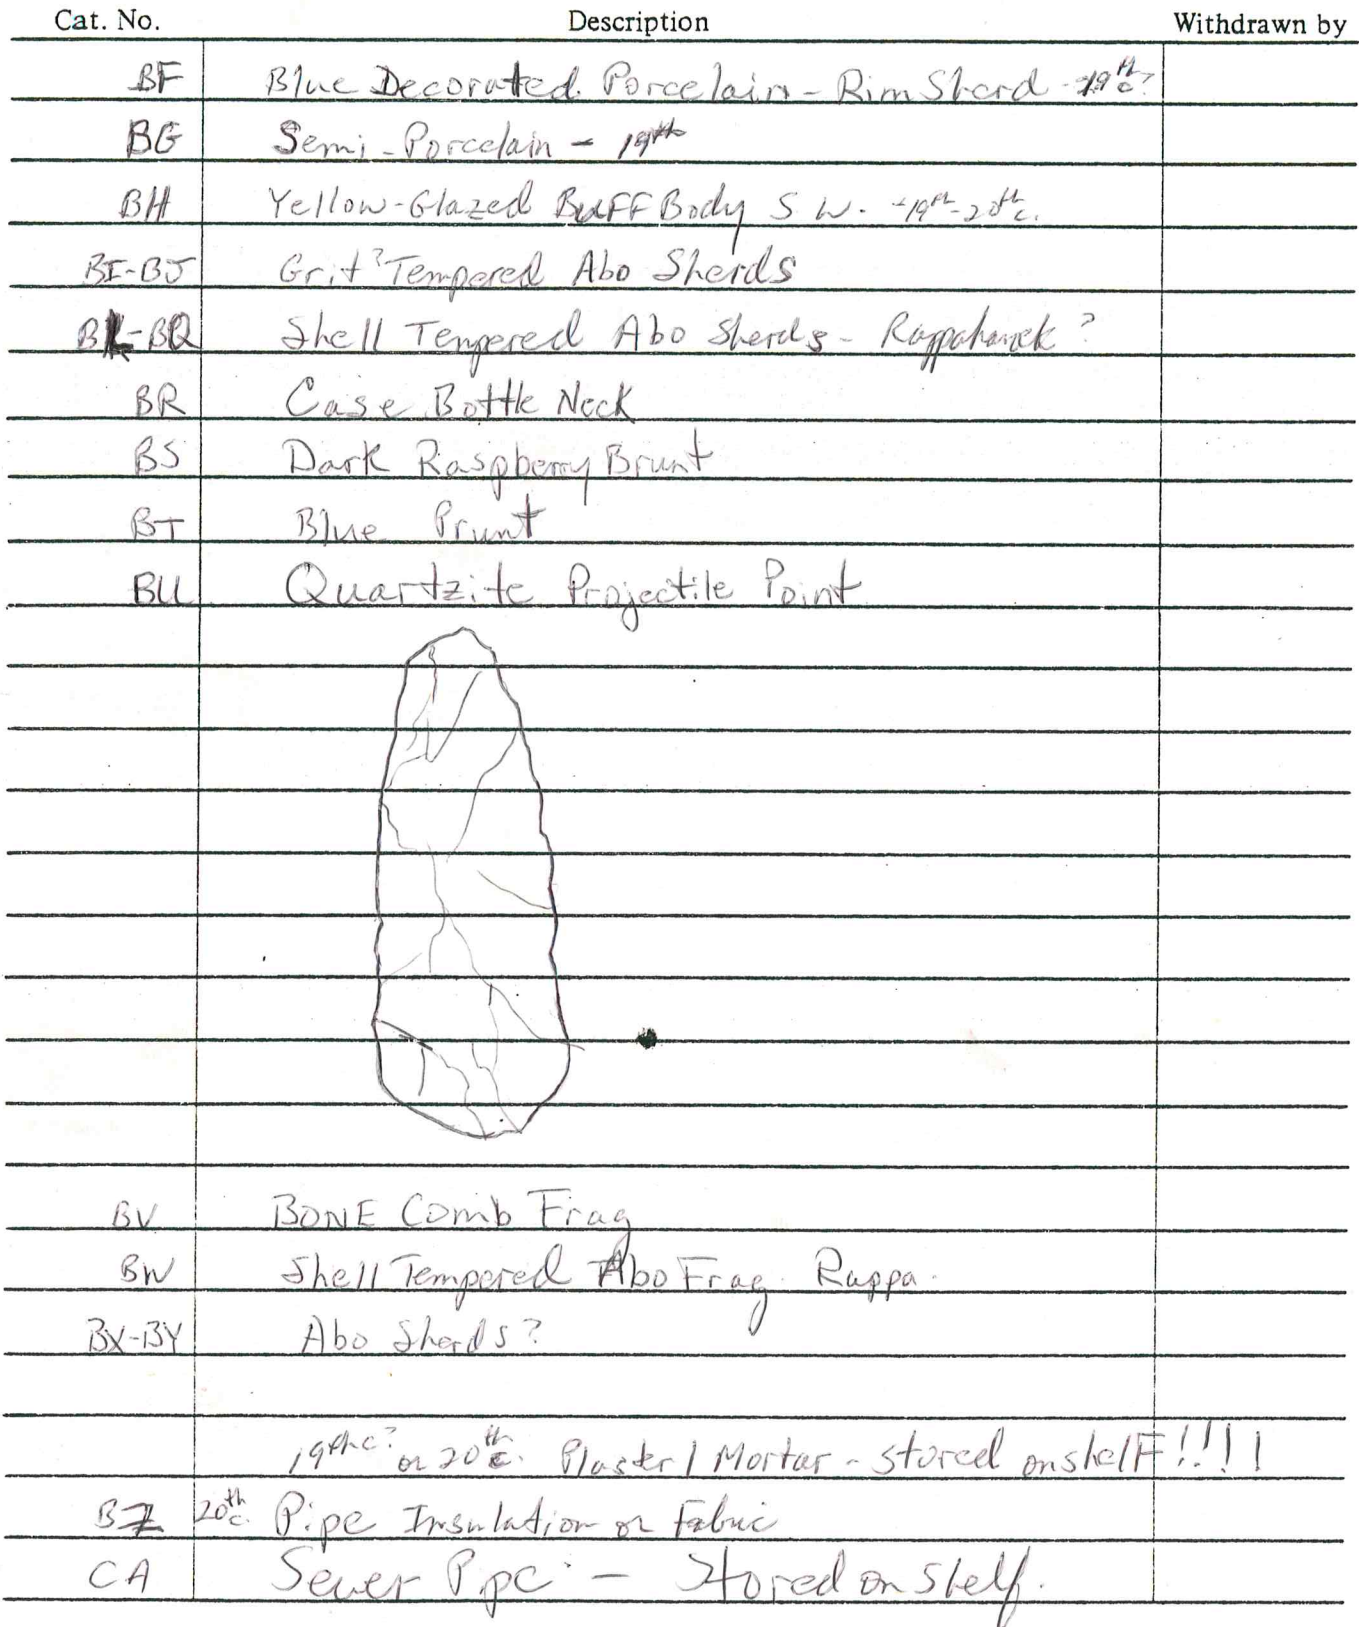 Cat. No. Description Withdrawn by
BF Blue Decorated Porcelain - Rim Sherd - 19th c?
BG Semi-Porcelain - 19th
BH Yellow-Glazed Buff Body S W. - 19th-20th c.
BI-BJ Grit? Tempered Abo Sherds
BK-BQ Shell Tempered Abo Sherds - Rappahanek?
BR Case Bottle Neck
BS Dark Raspberry Brunt
BT Blue Prunt
BU Quartzite Projectile Point
BV BONE Comb Frag
BW Shell Tempered Abo Frag. Rappa.
BX-BY Abo Sherds?
19th c? or 20th c. Plaster / Mortar - stored on shelF!!!!
BZ 20th c. Pipe Insulation or Fabric
CA Sewer Pipe - Stored on Shelf.